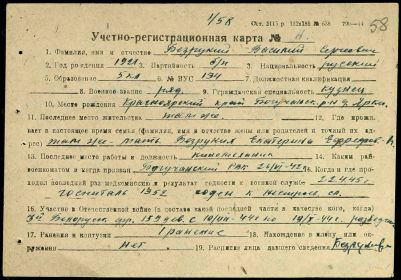 1/58
58
Учетно-регистрационная карта №
1. Фамилия, имя и отчество Безрукий Василий Сергеевич
2. Год рождения 1921 3. Партийность б/п 3. Национальность русский
5. Образование 5 кл 6. № ВУС 134 7. Должностная квалификация
8. Военное звание ряд. 9. Гражданская специальность кузнец
10. Место рождения Красноярский край Богучанск. р-н д. Ярки
11. Последнее место жительства там же 12. Где прожи-
вает в настоящее время семья (фамилия, имя и отчество жены или родителей и точный их ад-
рес) там же мать Безрукия Екатерина
13. Последнее место работы и должность 14. Каким рай-
военкоматом и когда призван Богучанский РВК 26/VI-42 15. Когда и где про-
ходил последний раз медкомиссию и результат годности к военной службе 5.2.45 г.
госпиталь 1352 годен к нестроев. сл.
16. Участие в Отечественной войне (в составе какой последней части в качестве кого, когда)
3й Белорусск. фр. разведчик
17. Ранения и контузии 1 ранение 18. Нахождение в плену или окру-
жении нет 19. Расписка лица давшего сведения